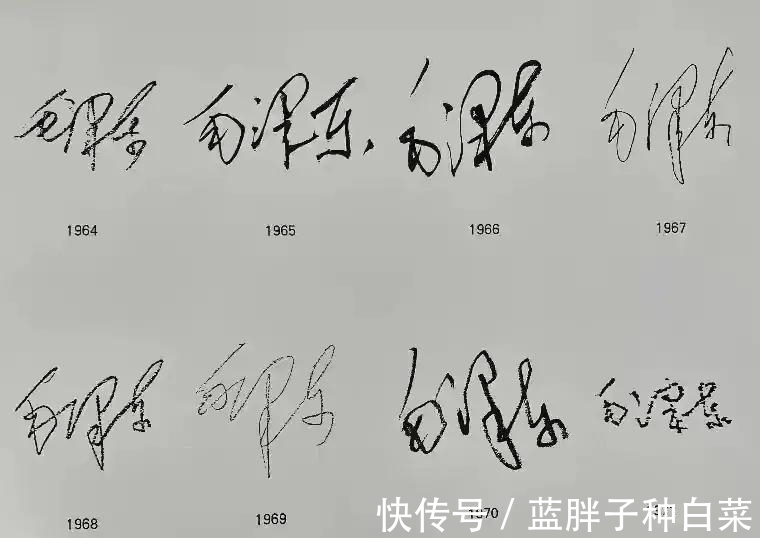 毛泽东 毛泽东 毛泽东 毛泽东
1964 1965 1966 1967
毛泽东 毛泽东 毛泽东 毛泽东
1968 1969 1970
快传号 / 蓝胖子种白菜